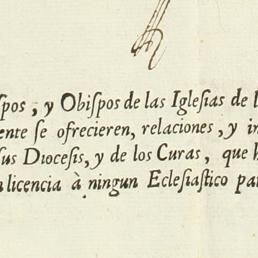 ſpos, y Obiſpos de las Igleſias de l
ente ſe ofrecieren, relaciones, y in
ſus Dioceſis, y de los Curas, que h
licencia à ningun Ecleſiaſtico pa